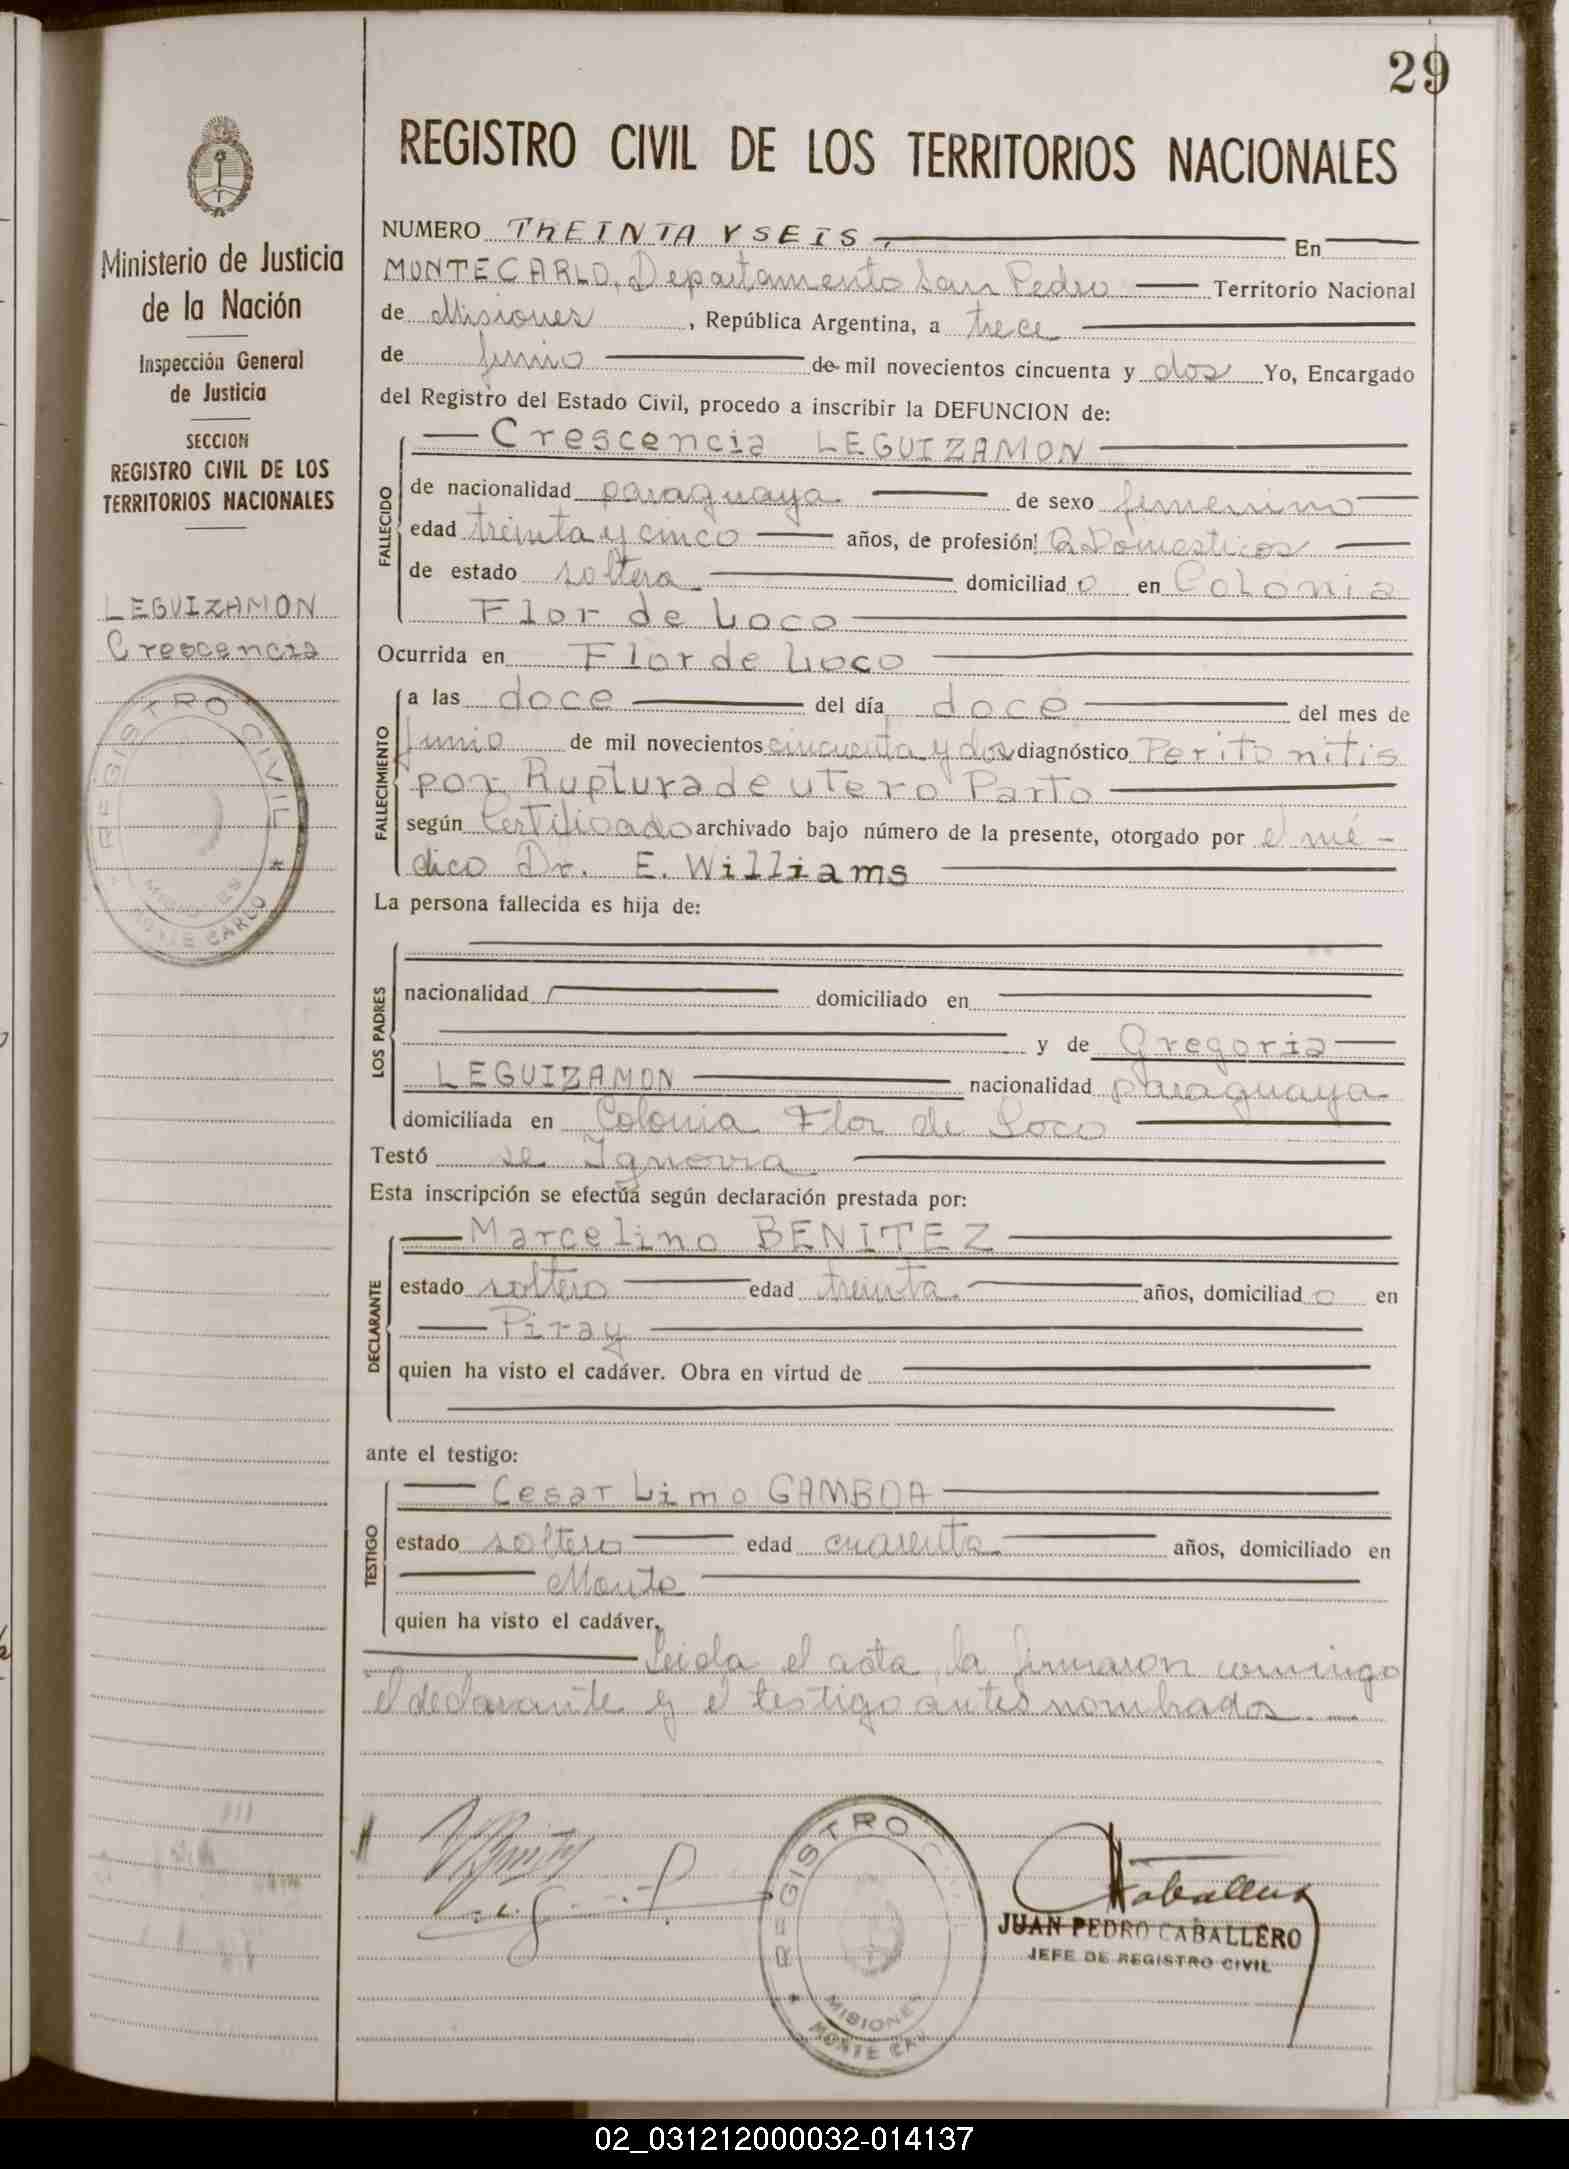 29
REGISTRO CIVIL DE LOS TERRITORIOS NACIONALES
Ministerio de Justicia
de la Nación
Inspección General
de Justicia
SECCION
REGISTRO CIVIL DE LOS
TERRITORIOS NACIONALES
LEGUIZAMON
Crescencia
REGISTRO CIVIL
MISIONES
MONTE CARLO
NUMERO TREINTA Y SEIS. En
MONTECARLO, Departamento San Pedro Territorio Nacional
de Misiones, República Argentina, a trece
de Junio de mil novecientos cincuenta y dos Yo, Encargado
del Registro del Estado Civil, procedo a inscribir la DEFUNCION de:
Crescencia LEGUIZAMON
FALLECIDO
de nacionalidad paraguaya. de sexo femenino
edad treinta y cinco años, de profesión: Q Domesticos
de estado soltera domiciliado en Colonia
Flor de Loco
Ocurrida en Flor de Loco
FALLECIMIENTO
a las doce del día doce del mes de
Junio de mil novecientos cincuenta y dos diagnóstico Peritonitis
por Ruptura de utero Parto
según Certificado archivado bajo número de la presente, otorgado por el mé-
dico Dr. E. Williams
La persona fallecida es hija de:
LOS PADRES
nacionalidad domiciliado en
y de Gregoria
LEGUIZAMON nacionalidad paraguaya
domiciliada en Colonia Flor de Loco
Testó se Ignora
Esta inscripción se efectúa según declaración prestada por:
Marcelino BENITEZ
DECLARANTE
estado soltero edad treinta años, domiciliado en
Piray
quien ha visto el cadáver. Obra en virtud de
ante el testigo:
Cesar Limo GAMBOA
TESTIGO
estado soltero edad cuarenta años, domiciliado en
Monte
quien ha visto el cadáver.
Leida el acta, la firmaron conmingo
el declarante y el testigo antes nombrados.
REGISTRO
MISIONES
MONTE CAR
JUAN PEDRO CABALLERO
JEFE DE REGISTRO CIVIL
02_031212000032-014137